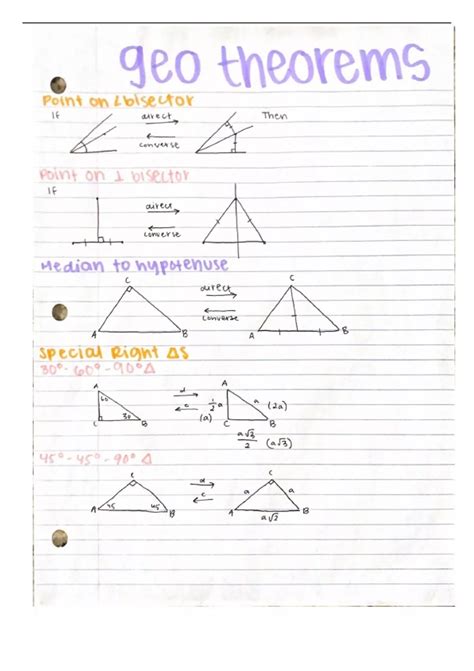 geo theorems
Point on ∠bisector
If direct Then
converse
Point on ⊥ bisector
If
direct
converse
Median to hypotenuse
C direct C
converse
A B A B
Special Right ΔS
30°-60°-90°Δ
A d A
60 c ½a a (2a)
30 (a)
C B C B
a√3/2 (a√3)
45°-45°-90° Δ
C d C
c a a
A 45 45 B A B
a√2